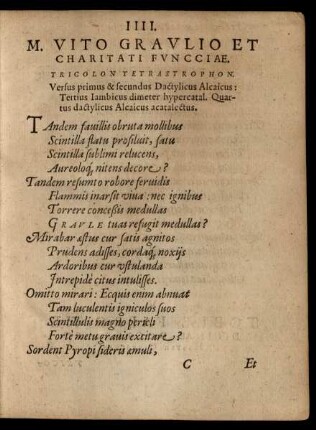 IIII.
M. VITO GRAVLIO ET
CHARITATI FVNCCIAE.
TRICOLON TETRASTROPHON.
Versus primus & secundus Dactylicus Alcaicus:
Tertius Iambicus dimeter hypercatal. Quar-
tus dactylicus Alcaicus acatalectus.
TAndem fauillis obruta mollibus
Scintilla flatu prosiluit, fatu
Scintilla sublimi relucens,
Aureoloq́, nitens decore?
Tandem resumto robore feruidis
Flammis inarsit viua: nec ignibus
Torrere concessis medullas
GRAVLE tuas refugit medullas?
Mirabar æstus cur satis agnitos
Prudens adisses, cordaq́, noxijs
Ardoribus cur vstulanda
Intrepidè citus intulisses.
Omitto mirari: Ecquis enim abnuat
Tam luculentis igniculos suos
Scintillulis magno pericli
Fortè metu grauis excitare?
Sordent Pyropi sideris æmuli,
C Et